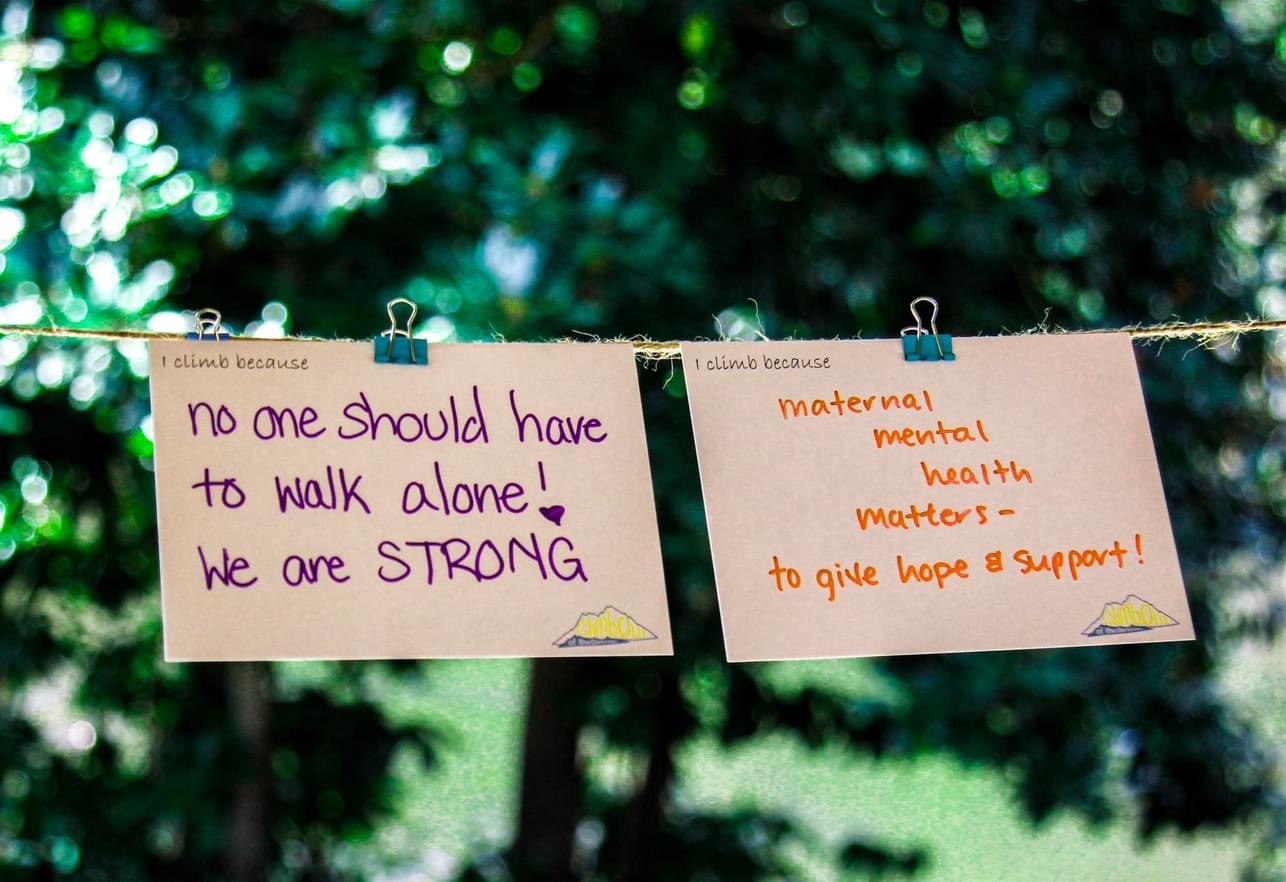 I climb because
no one should have
to walk alone!
We are STRONG
I climb because
maternal
mental
health
matters -
to give hope & support!